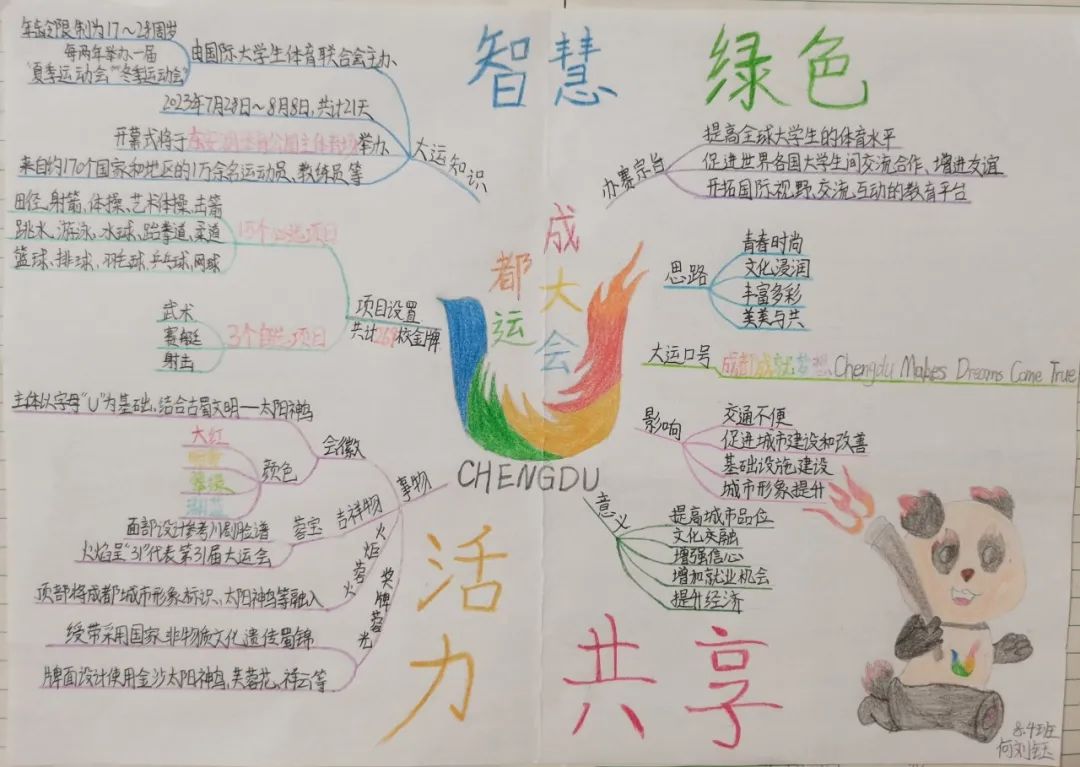 智慧
绿色
年龄限制为17~28周岁
每两年举办一届
"夏季运动会""冬季运动会"
由国际大学生体育联合会主办
2023年7月28日~8月8日,共计21天
开幕式将于东安湖体育公园主体育场举办
来自约170个国家和地区的1万余名运动员、教练员等
大运知识
田径、射箭、体操、艺术体操、击箭
跳水、游泳、水球、跆拳道、柔道
篮球、排球、羽毛球、乒乓球、网球
15个必选项目
武术
赛艇
射击
3个自选项目
项目设置
共计269枚金牌
主体以字母"U"为基础,结合古蜀文明——太阳神鸟
会徽
大红
明黄
翠绿
湖蓝
颜色
事物
吉祥物
蓉宝
面部设计参考川剧脸谱
火焰呈"31"代表第31届大运会
火炬蓉火
顶部将成都城市形象标识、太阳神鸟等融入
奖牌蓉光
绶带采用国家非物质文化遗传蜀锦
牌面设计使用金沙太阳神鸟,芙蓉花,祥云等
成都大运会
CHENGDU
办赛宗旨
提高全球大学生的体育水平
促进世界各国大学生间交流合作、增进友谊
开拓国际视野、交流、互动的教育平台
思路
青春时尚
文化浸润
丰富多彩
美美与共
大运口号
成都成就梦想 Chengdu Makes Dreams Come True
影响
交通不便
促进城市建设和改善
基础设施建设
城市形象提升
意义
提高城市品位
文化交融
增强信心
增加就业机会
提升经济
活力
共享
8.4班
何刘钰